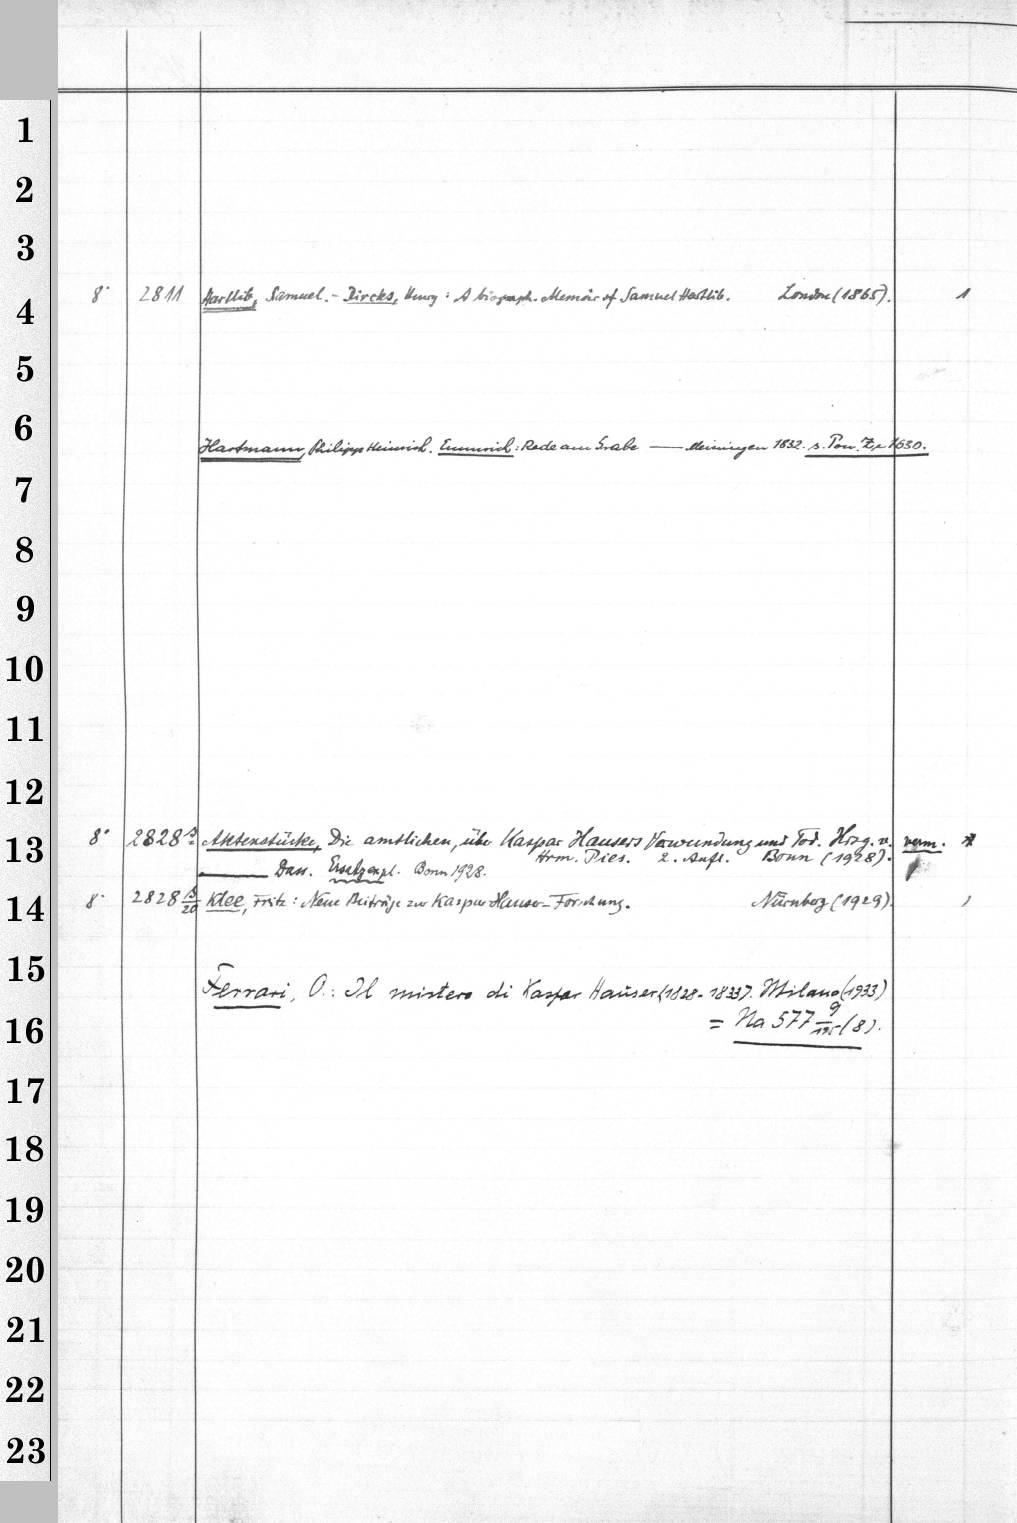 1
2
3
8° 2811 Hartlib, Samuel. - Dircks, Henry: A biograph. Memoir of Samuel Hartlib. London (1865). 1
4
5
6
Hartmann, Philipp Heinrich. Emmrich: Rede am Grabe — Meiningen 1832. s. 1530.
7
8
9
10
11
12
8° 2828 Aktenstücke, Die amtlichen, über Kaspar Hausers Verwundung und Tod. Hrsg. v. verm.
13
Hrm. Pies. 2. Aufl. Bonn (1928).
— Dass. Ersatzexpl. Bonn 1928.
8° 2828 Klee, Fritz: Neue Beiträge zur Kaspar Hauser-Forschung. Nürnberg (1929). 1
14
15
Ferrari, O.: Il mistero di Kaspar Hauser (1828-1833). Milano (1933)
= Na 577 9/195 (8).
16
17
18
19
20
21
22
23